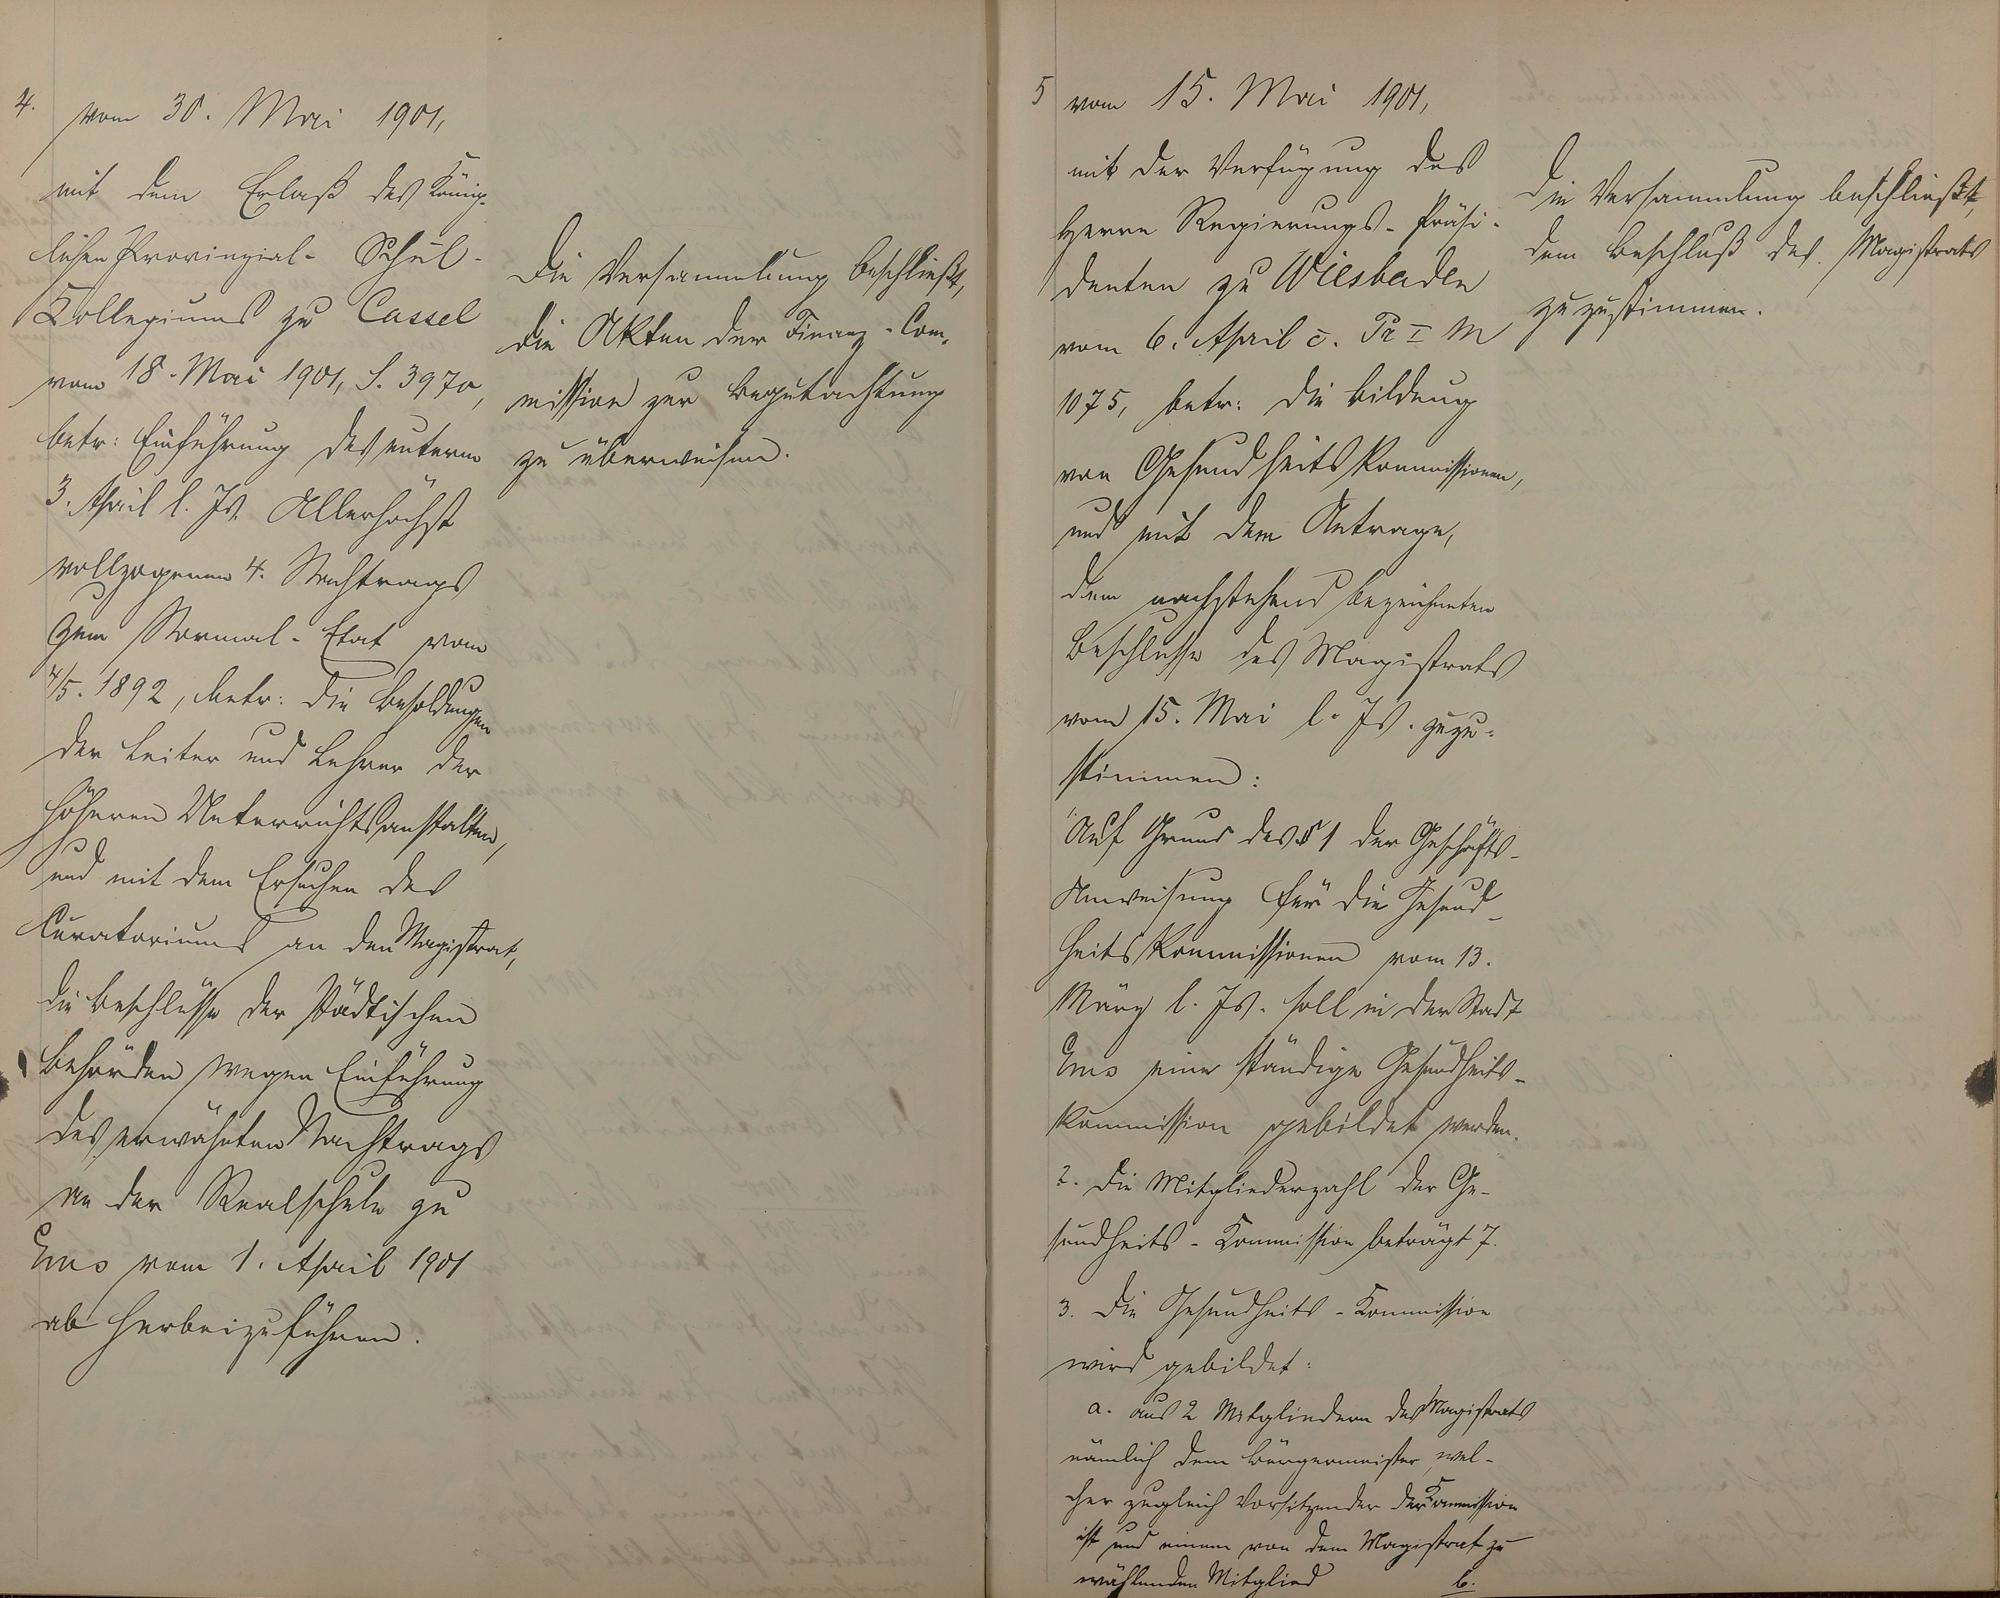 4.
vom 30. Mai 1901,
mit dem Erlaß des König-
lichen Provinzial- Schul-
Kollegiums zu Cassel
vom 18. Mai 1901, S. 3970,
betr: Einführung des unterm
3. April l. Js. Allerhöchst
vollzogenen 4. Nachtrags
zum Normal-Etat vom
4/5. 1892, betr: die Besoldungen
der Leiter und Lehrer der
höheren Unterrichtsanstalten,
und mit dem Ersuchen des
Curatoriums an den Magistrat,
die Beschlüsse der städtischen
Behörden wegen Einführung
des erwähnten Nachtrags
an der Realschule zu
Ems vom 1. April 1901
ab herbeizuführen.
Die Versammlung beschließt,
die Akten der Finanz-Com-
mission zur Begutachtung
zu überweisen.
5
vom 15. Mai 1901,
mit der Verfügung des
Herrn Regierungs-Präsi-
denten zu Wiesbaden
vom 6. April c. Pr I M
1075, betr: die Bildung
von Gesundheitskommissionen,
und mit dem Antrage,
dem nachstehend bezeichneten
Beschlusse des Magistrats
vom 15. Mai l. Js. zuzu-
stimmen:
Auf Grund des § 1 der Geschäfts-
Anweisung für die Gesund-
heitskommissionen vom 13.
März l. Js. soll in der Stadt
Ems eine ständige Gesundheits-
kommission gebildet werden.
2. Die Mitgliederzahl der Ge-
sundheits-Kommission beträgt 7.
3. Die Gesundheits-Kommission
wird gebildet:
a. aus 2 Mitgliedern des Magistrats
nämlich dem Bürgermeister, wel-
cher zugleich Vorsitzender der Kommission
ist und einem von dem Magistrat zu
wählenden Mitglied
b.
Die Versammlung beschließt,
dem Beschluß des Magistrats
zuzustimmen.